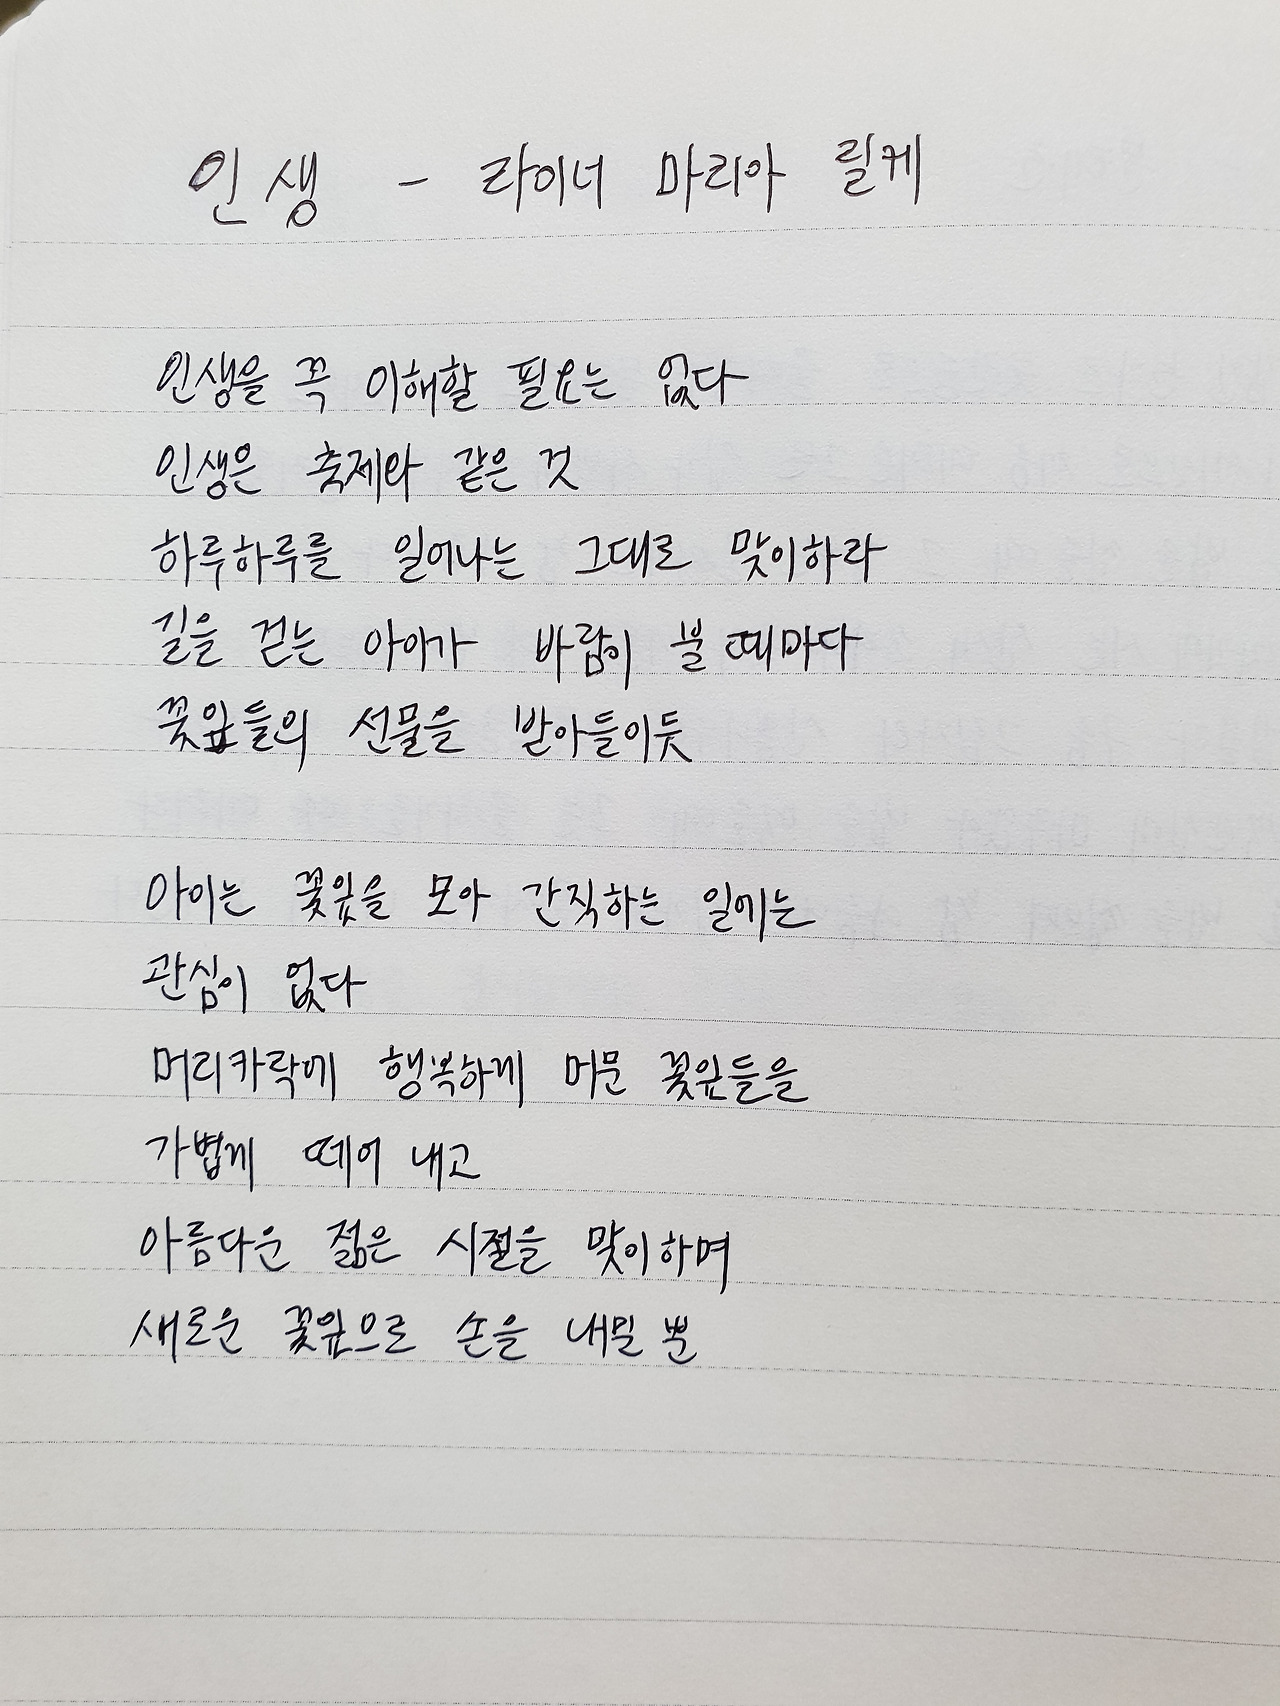 인생 - 라이너 마리아 릴케
인생을 꼭 이해할 필요는 없다
인생은 축제와 같은 것
하루하루를 일어나는 그대로 맞이하라
길을 걷는 아이가 바람이 불 때마다
꽃잎들의 선물을 받아들이듯
아이는 꽃잎을 모아 간직하는 일에는
관심이 없다
머리카락에 행복하게 머문 꽃잎들을
가볍게 떼어 내고
아름다운 젊은 시절을 맞이하며
새로운 꽃잎으로 손을 내밀 뿐